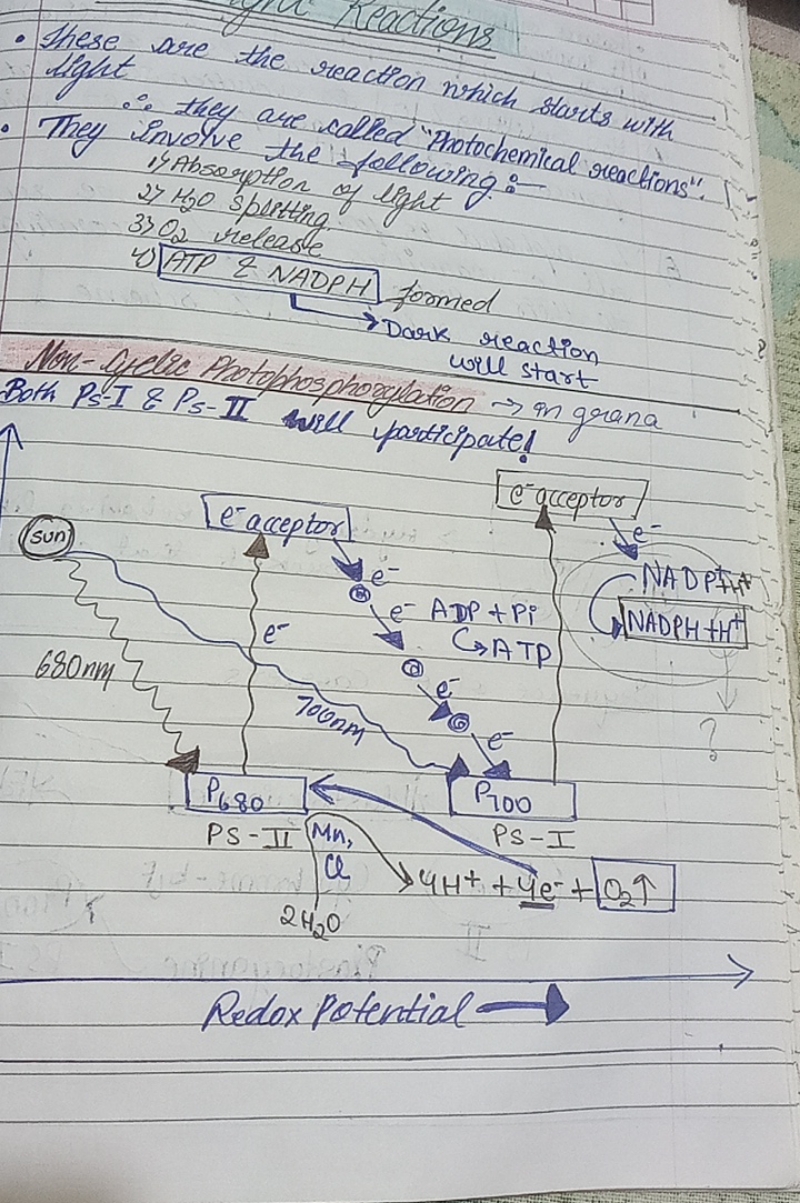 Light Reactions
• These are the reaction which starts with
light
∴ they are called "Photochemical reactions".
• They involve the following :-
1) Absorption of light
2) H2O splitting
3) O2 release
4) ATP & NADPH formed
→ Dark reaction
will start
Non-Cyclic Photophosphorylation → in grana
Both PS-I & PS-II will participate!
e- acceptor
e- acceptor
sun
e-
e-
NADP+H+
e- ADP + Pi
NADPH + H+
ATP
e-
680nm
e-
700nm
e-
?
P680
P700
PS-II
Mn,
PS-I
Cl
4H+ + 4e- + O2↑
2H2O
Redox Potential →